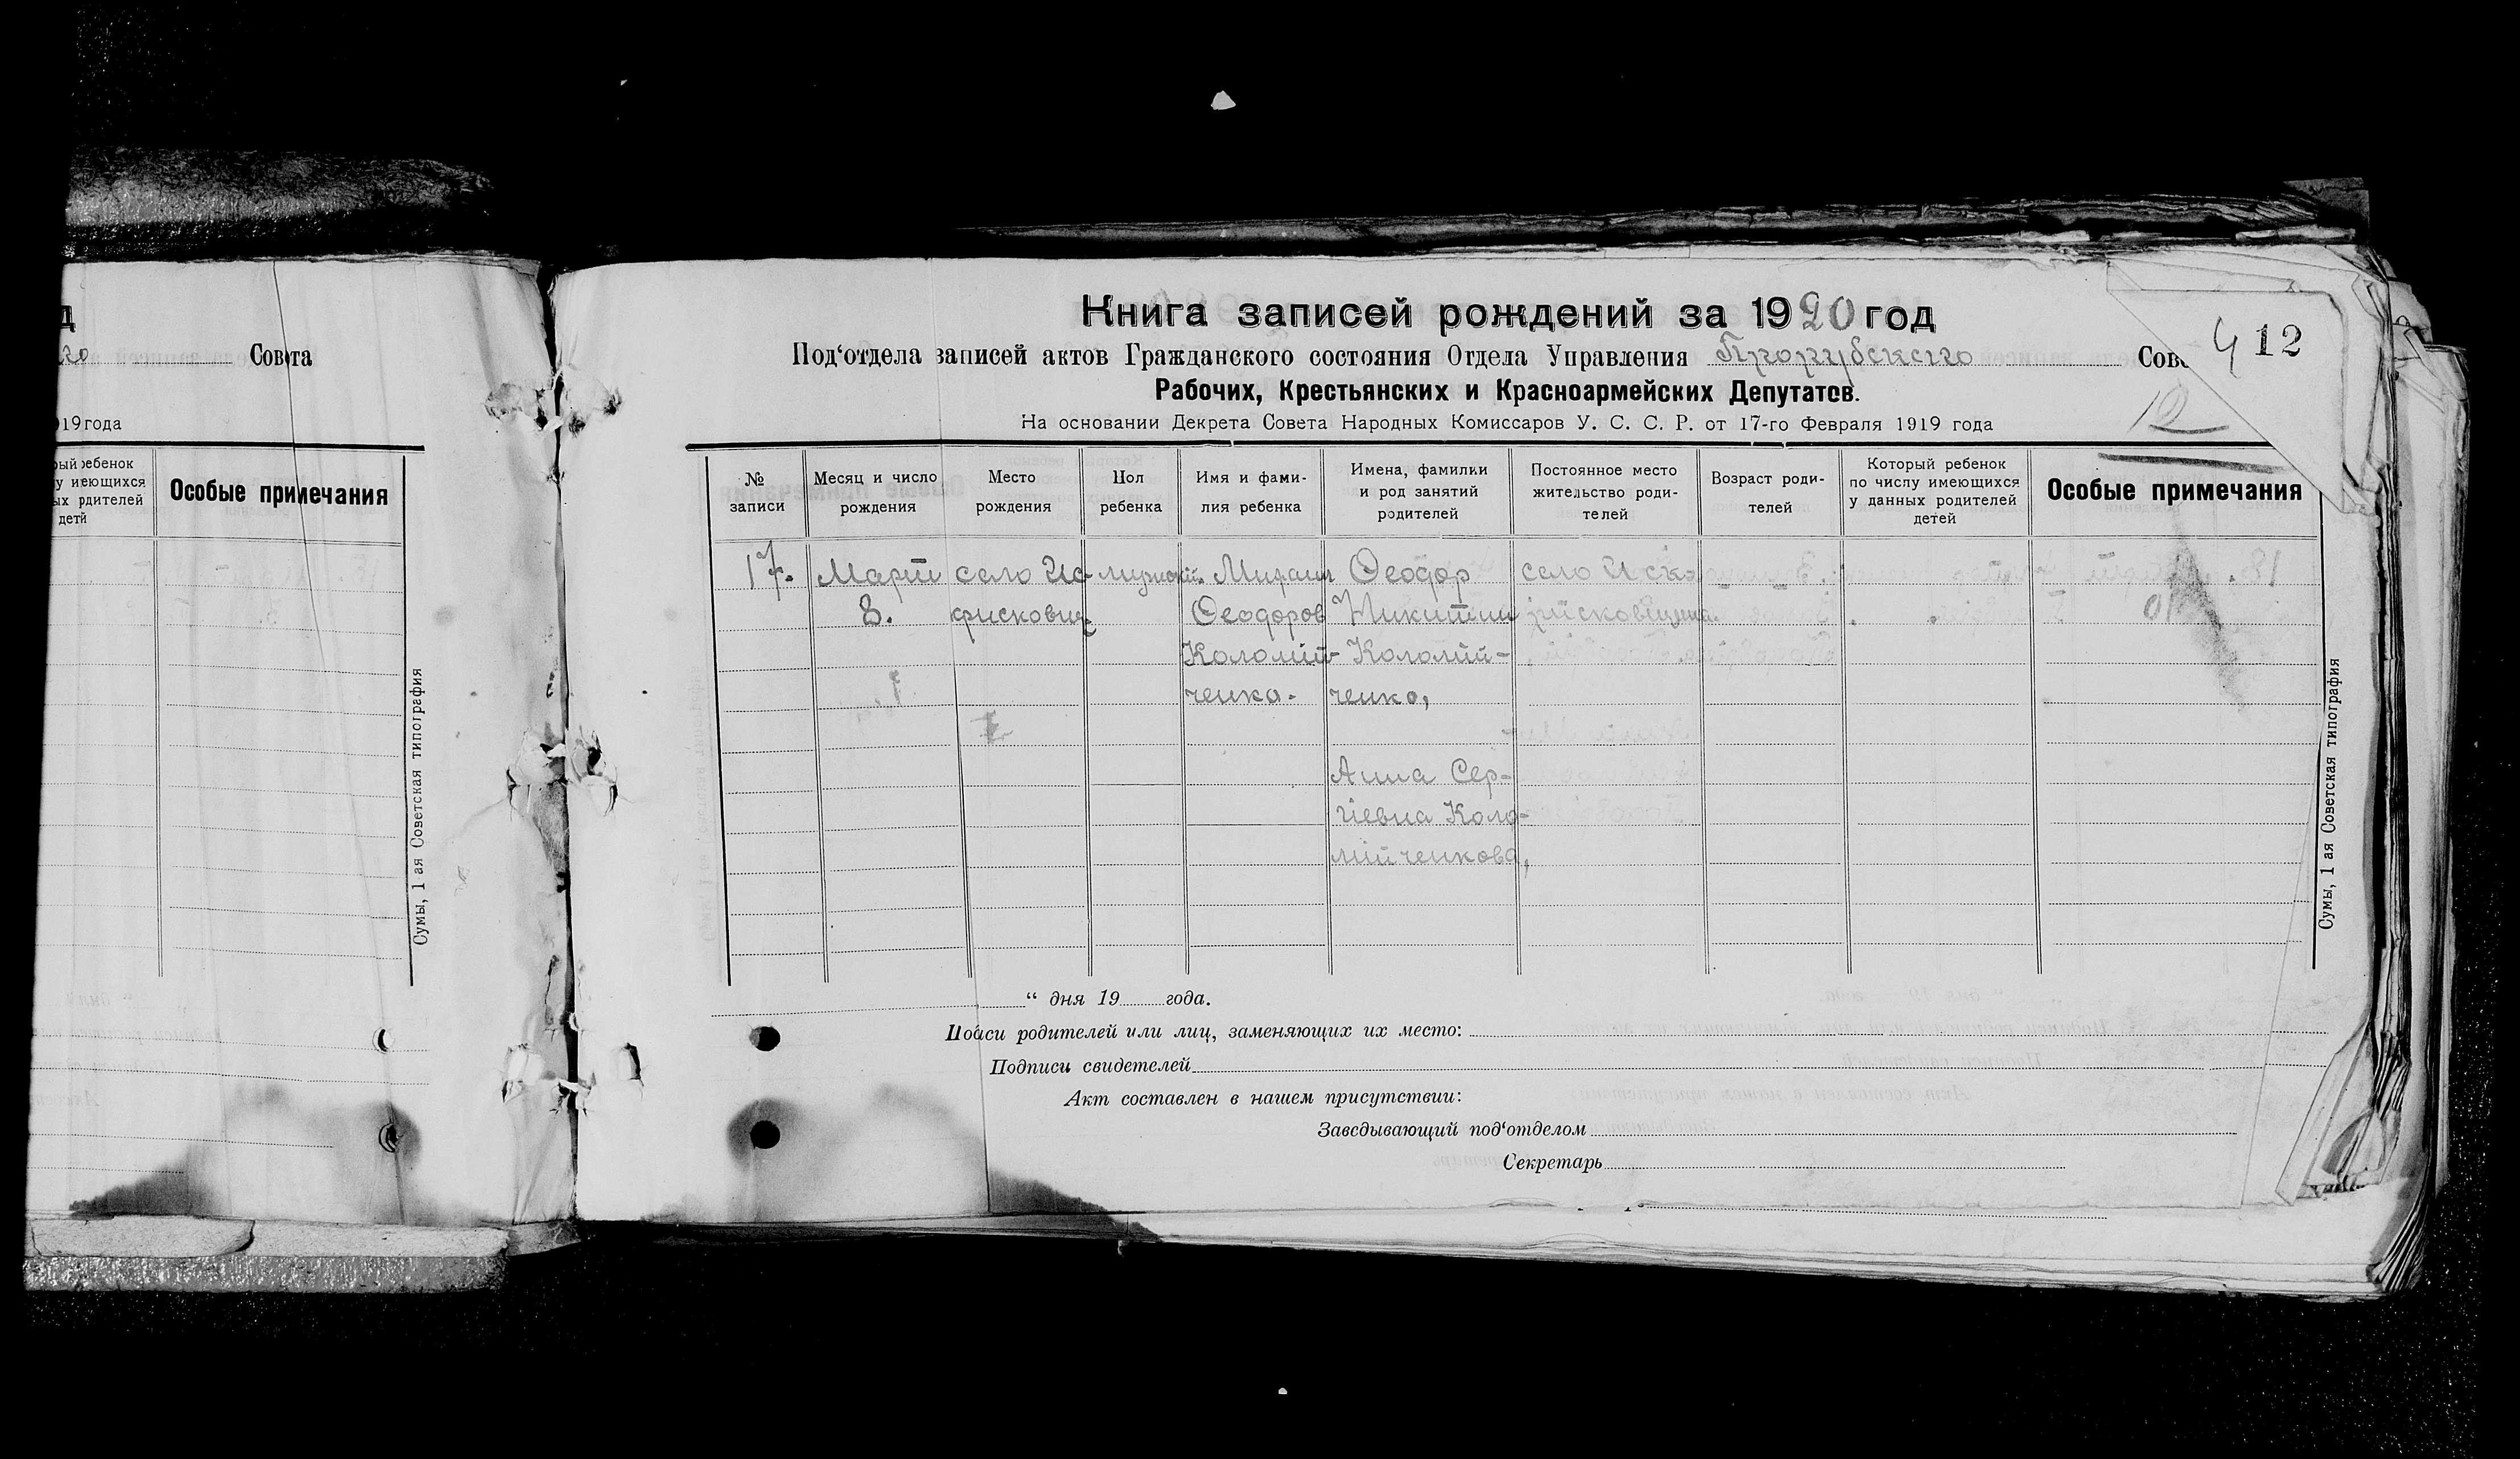 д
Совета
19 года
Особые примечания
Сумы, 1 ая Советская типография
Книга записей рождений за 1920 год
4 12
Под‘отдела записей актов Гражданского состояния Отдела Управления Прорубского Сов
Рабочих, Крестьянских и Красноармейских Депутатов.
12
На основании Декрета Совета Народных Комиссаров У. С. С. Р. от 17-го Февраля 1919 года
№ записи
Месяц и число рождения
Место рождения
Пол ребенка
Имя и фами-
лия ребенка
Имена, фамилии
и род занятий
родителей
Постоянное место
жительство роди-
телей
Возраст роди-
телей
Который ребенок
по числу имеющихся
у данных родителей
детей
Особые примечания
17. Март село Ис- Михаил Феодор село Иск-
8. Феодоров Никитин
Коломій- Коломій-
ченко. ченко,
Анна Сер-
гіевна Коло-
мійченкова,
Сумы, 1 ая Советская типография
“ дня 19 года.
родителей или лиц, заменяющих их место:
Подписи свидетелей
Акт составлен в нашем присутствии:
Заведывающий под‘отделом
Секретарь